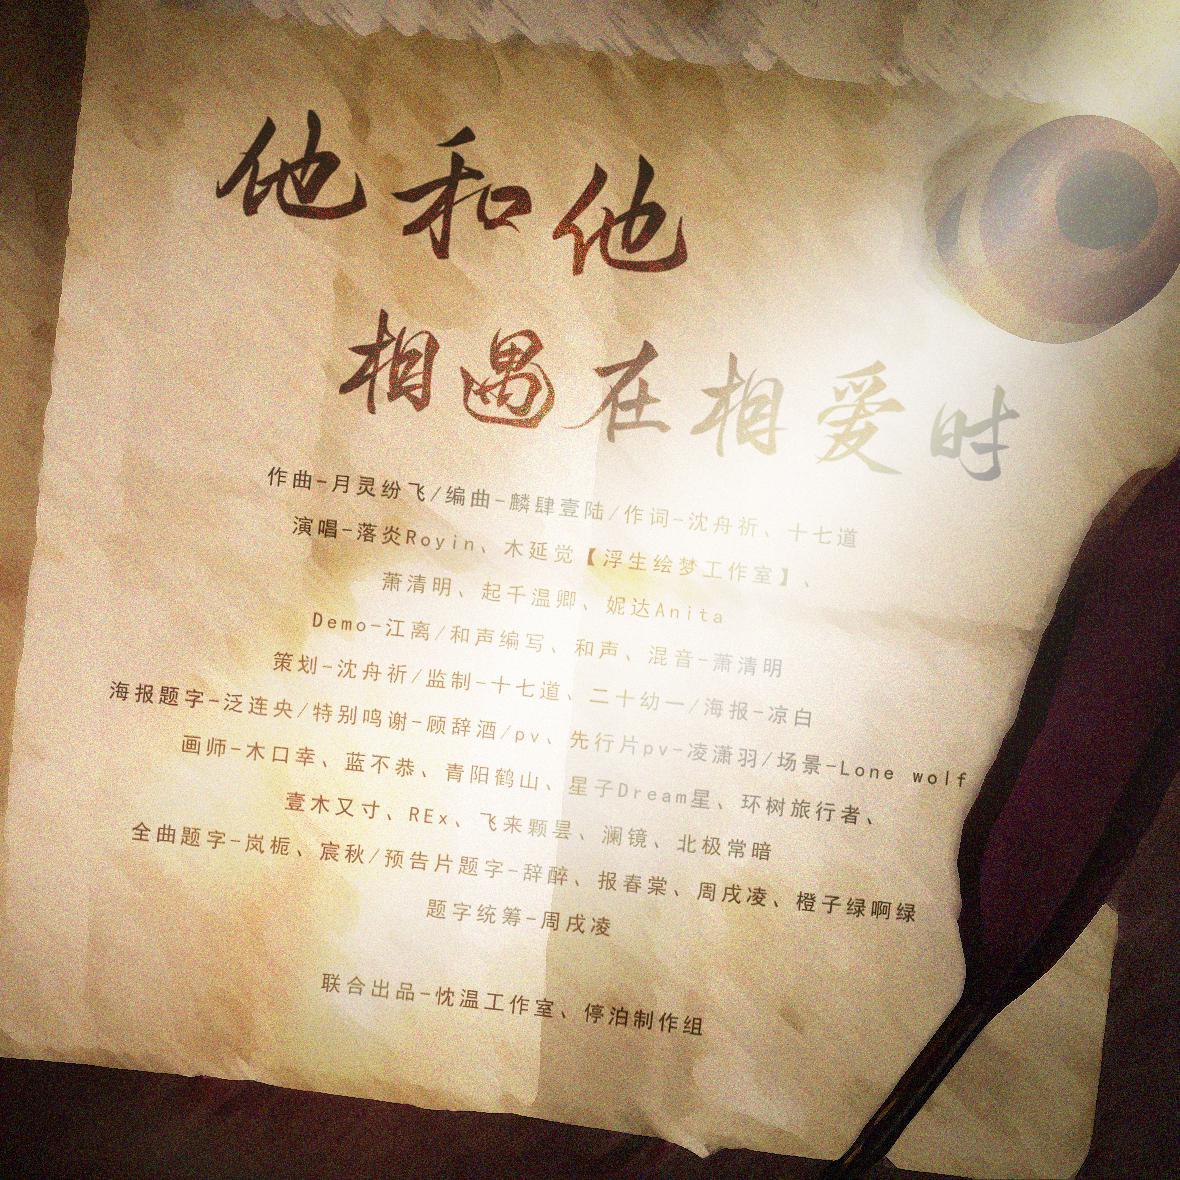 他和他
相遇在相爱时
作曲-月灵纷飞/编曲-麟肆壹陆/作词-沈舟祈、十七道
演唱-落炎Royin、木延觉【浮生绘梦工作室】、
萧清明、起千温卿、妮达Anita
Demo-江离/和声编写、和声、混音-萧清明
策划-沈舟祈/监制-十七道、二十幼一/海报-凉白
海报题字-泛连央/特别鸣谢-顾辞酒/pv、先行片pv-凌潇羽/场景-Lone wolf
画师-木口幸、蓝不恭、青阳鹤山、星子Dream星、环树旅行者、
壹木又寸、REx、飞来颗昙、澜镜、北极常暗
全曲题字-岚栀、宸秋/预告片题字-辞醉、报春棠、周戌凌、橙子绿啊绿
题字统筹-周戌凌
联合出品-忱温工作室、停泊制作组